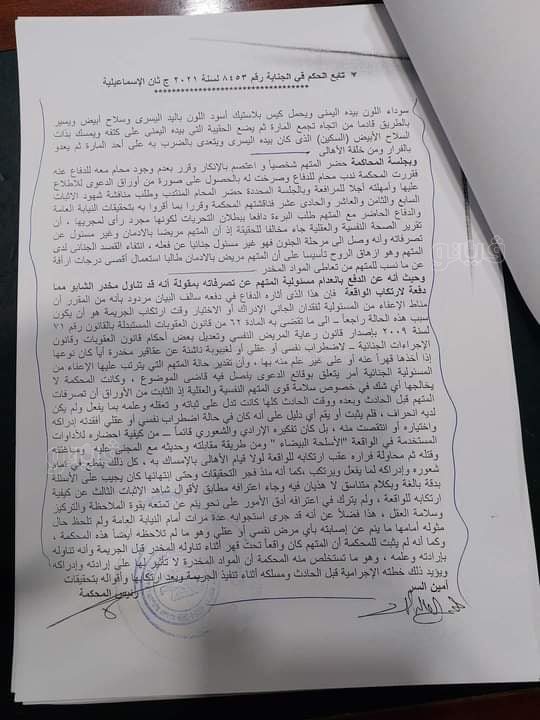 ٧ تابع الحكم في الجناية رقم ٨٤٥٣ لسنة ٢٠٢١ ج ثان الإسماعيلية
سوداء اللون بيده اليمنى ويحمل كيس بلاستيك أسود اللون باليد اليسرى وسلاح أبيض ويسير
بالطريق قادما من اتجاه تجمع المارة ثم يضع الحقيبة التي بيده اليمنى على كتفه ويمسك بذات
السلاح الأبيض (السكين) الذى كان بيده اليسرى ويتعدى بالضرب به على أحد المارة ثم يعدو
بالفرار ومن خلفة الأهالى
وبجلسة المحاكمة حضر المتهم شخصياً و اعتصم بالإنكار وقرر بعدم وجود محام معه للدفاع عنه
فقررت المحكمة ندب محام للدفاع وصرحت له بالحصول على صورة من أوراق الدعوى للاطلاع
عليها وأمهلته أجلا للمرافعة وبالجلسة المحددة حضر المحام المنتدب وطلب مناقشة شهود الاثبات
السابع والثامن والعاشر والحادى عشر فناقشتهم المحكمة وقررا بما أقروا به بتحقيقات النيابة العامة
والدفاع الحاضر مع المتهم طلب البرءة دافعا ببطلان التحريات لكونها مجرد رأى لمجريها ، أن
تقرير الصحة النفسية والعقلية جاء مخالفا للحقيقة إذ أن المتهم مريضا بالادمان وغير مسئول عن
تصرفاته وأنه وصل الى مرحلة الجنون فهو غير مسئول جنائيا عن فعله ، انتفاء القصد الجنائى لدى
المتهم وهو ازهاق الروح تأسيسا على أن المتهم مريض بالادمان طالبا استعمال أقصى درجات الرأفة
عن ما نسب للمتهم من تعاطى المواد المخدر
وحيث أنه عن الدفع بانعدام مسئولية المتهم عن تصرفاته بمقولة أنه قد تناول مخدر الشابو مما
دفعة لارتكاب الواقعة فإن هذا الذى أثاره الدفاع في دفعه سالف البيان مردود بأنه من المقرر أن
مناط الإعفاء من المسئولية لفقدان الجاني الإدراك أو الاختيار وقت ارتكاب الجريمة هو أن يكون
سبب هذه الحالة راجعاً ـ الى ما تقضى به المادة ٦٢ من قانون العقوبات المستبدلة بالقانون رقم ٧١
لسنة ٢٠٠٩ بإصدار قانون رعاية المريض النفسي وتعديل بعض أحكام قانون العقوبات وقانون
الإجراءات الجنائية ـ لاضطراب نفسي أو عقلي أو لغيبوبة ناشئة عن عقاقير مخدرة أياً كان نوعها
إذا أخذها قهراً عنه أو على غير علم منه بها ، وأن تقدير حالة المتهم التي يترتب عليها الإعفاء من
المسئولية الجنائية أمر يتعلق بوقائع الدعوى يفصل فيه قاضى الموضوع ، وكانت المحكمة لا
يخالجها أي شك في خصوص سلامة قوى المتهم النفسية والعقلية إذ الثابت من الأوراق أن تصرفات
المتهم قبل الحادث وبعده ووقت الحادث كلها كانت تدل على ثباته و تعقله وعلمه بما يفعل ولم يكن
لديه انحراف ، فلم يثبت أو يقم أي دليل على أنه كان في حالة اضطراب نفسي أو عقلي أفقدته إدراكه
واختياره أو انتقصت منه ، بل كان تفكيره الإرادي والشعوري قائماً ـ من كيفية إحضاره للأدوات
المستخدمة في الواقعة "الأسلحة البيضاء" ومن طريقة مقابلته وحديثه مع المجني عليه
وقتله ثم محاولة فراره عقب ارتكابه للواقعة لولا قيام الأهالى بالإمساك به ، كل ذلك يقطع في
شعوره وإدراكه لما يفعل ويرتكب ،كما أنه منذ فجر التحقيقات وحتى انتهائها كان يجيب على الأسئلة
بدقة بالغة وبكلام متناسق لا هذيان فيه وجاء اعترافه مطابق لأقوال شاهد الإثبات الثالث عن كيفية
ارتكابه للواقعة ، ولم يترك في اعترافه أدق الأمور على نحو ينم عن تمتعه بقوة الملاحظة والتركيز
وسلامة العقل ، هذا فضلاً عن أنه قد جرى استجوابه عدة مرات أمام النيابة العامة ولم تلحظ حال
مثوله أمامها ما ينم عن إصابته بأي مرض نفسي أو عقلي وهو ما لم تلاحظه أيضاً هذه المحكمة ،
وكما أنه لم يثبت للمحكمة أن المتهم كان واقعاً تحت قهر أثناء تناوله المخدر قبل الجريمة وأنه تناوله
بإرادته وعلمه ، وهو ما تستخلص منه المحكمة أن المواد المخدرة لا تأثير لها على إرادته وإدراكه
ويؤيد ذلك خطته الإجرامية قبل الحادث ومسلكه أثناء تنفيذ الجريمة وبعد ارتكابها وأقواله بتحقيقات
أمين السر
رئيس المحكمة